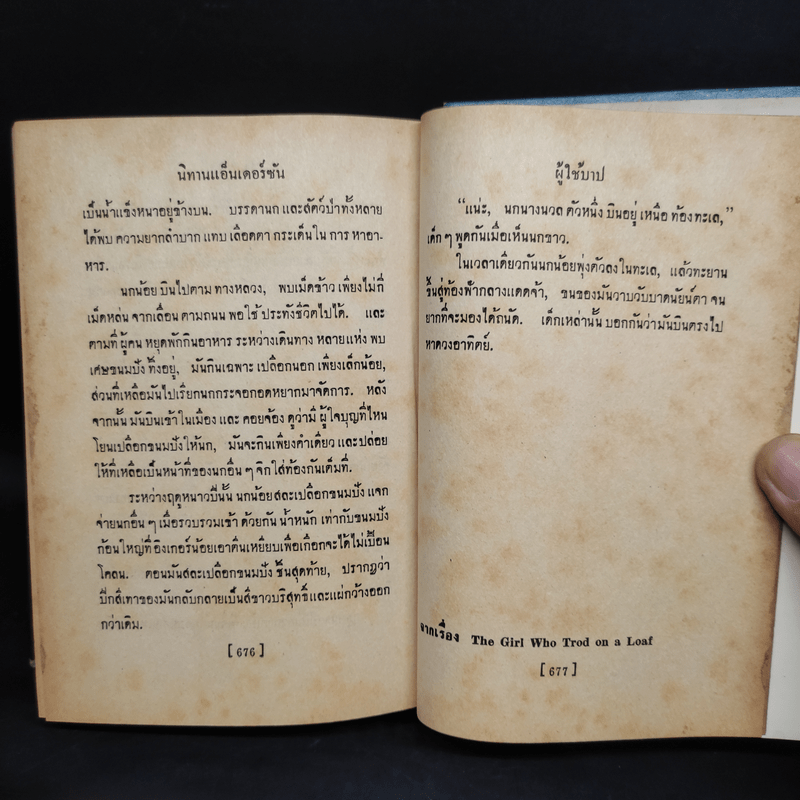 นิทานแอ็นเดอร์ซัน
เป็นน้ำแข็งหนาอยู่ข้างบน. บรรดานก และสัตว์ป่าทั้งหลาย
ได้พบ ความยากลำบาก แทบ เลือดตา กระเด็นใน การ หาอา-
หาร.
นกน้อย บินไปตาม ทางหลวง, พบเม็ดข้าว เพียงไม่กี่
เม็ดหล่น จากเลื่อน ตามถนน พอใช้ ประทังชีวิตไปได้. และ
ตามที่ ผู้คน หยุดพักกินอาหาร ระหว่างเดินทาง หลายแห่ง พบ
เศษขนมปัง ทิ้งอยู่, มันกินเฉพาะ เปลือกนอก เพียงเล็กน้อย,
ส่วนที่เหลือมันไปเรียกนกกระจอกอดหยากมาจัดการ. หลัง
จากนั้น มันบินเข้าในเมือง และ คอยจ้อง ดูว่ามี ผู้ใจบุญที่ไหน
โยนเปลือกขนมปังให้นก, มันจะกินเพียงคำเดียว และปล่อย
ให้ที่เหลือเป็นหน้าที่ของนกอื่น ๆ จิกใส่ท้องกันเต็มที่.
ระหว่างฤดูหนาวปีนั้น นกน้อยสละเปลือกขนมปัง แจก
จ่ายนกอื่น ๆ เมื่อรวบรวมเข้า ด้วยกัน น้ำหนัก เท่ากับขนมปัง
ก้อนใหญ่ที่ อิงเกอร์น้อยเอาตีนเหยียบเพื่อเกือกจะได้ไม่เปื้อน
โคลน. ตอนมันสละเปลือกขนมปัง ชิ้นสุดท้าย, ปรากฏว่า
ปีกสีเทาของมันกลับกลายเป็นสีขาวบริสุทธิ์ และแผ่กว้างออก
กว่าเดิม.
[ 676 ]
ผู้ใช้บาป
“แน่ะ, นกนางนวล ตัวหนึ่ง บินอยู่ เหนือ ท้องทะเล,”
เด็ก ๆ พูดกันเมื่อเห็นนกขาว.
ในเวลาเดียวกันนกน้อยพุ่งตัวลงในทะเล, แล้วทะยาน
ขึ้นสู่ท้องฟ้ากลางแดดจ้า, ขนของมันวาบวับบาดนัยน์ตา จน
ยากที่จะมองได้ถนัด. เด็กเหล่านั้น บอกกันว่ามันบินตรงไป
หาดวงอาทิตย์.
จากเรื่อง The Girl Who Trod on a Loaf
[ 677 ]